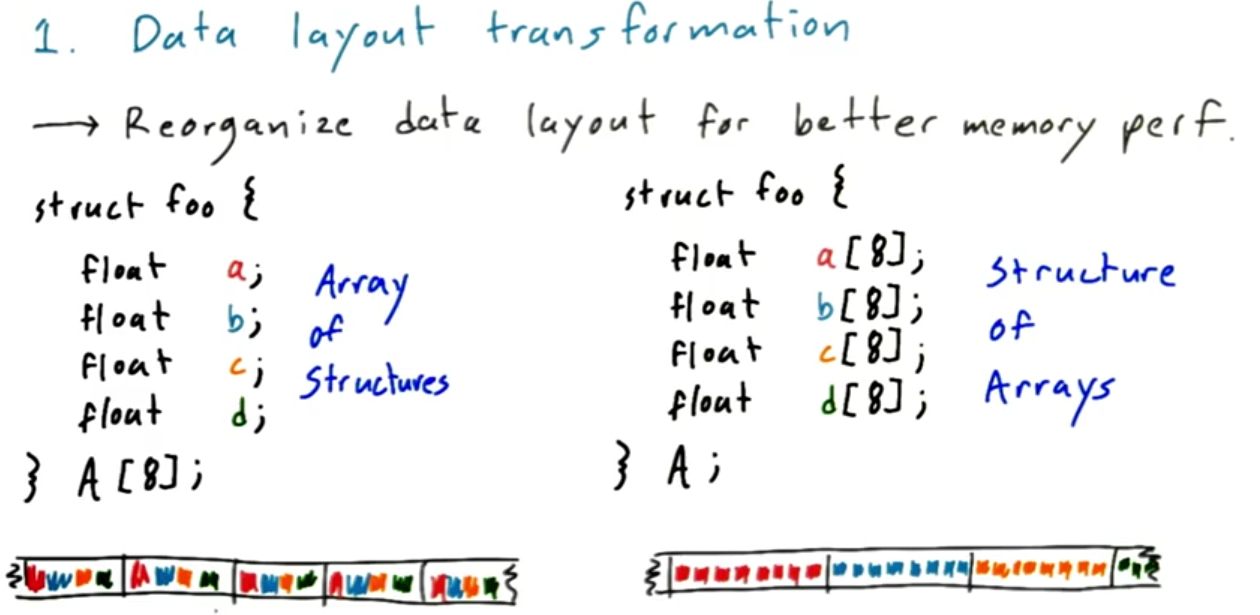 1. Data layout transformation
→ Reorganize data layout for better memory perf.
struct foo {
float a;
float b;
float c;
float d;
} A[8];
Array
of
Structures
struct foo {
float a[8];
float b[8];
float c[8];
float d[8];
} A;
Structure
of
Arrays